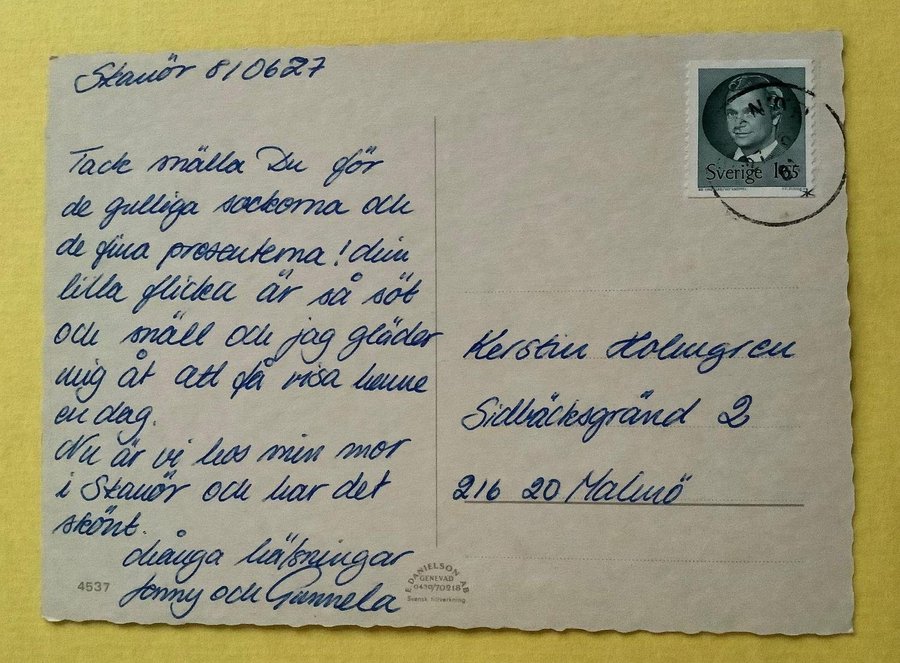 Skanör 810627
Tack snälla Du för
de gulliga sockorna och
de fina presenterna! Min
lilla flicka är så söt
och snäll och jag gläder
mig åt att få visa henne
en dag.
Nu är vi hos min mor
i Skanör och har det
skönt.
Många hälsningar
Jonny och Gunnela
4537
Sverige 165
Kerstin Holmgren
Sidbäcksgränd 2
216 20 Malmö
E. DANIELSON AB
GENEVAD
0430/70218
Svensk tillverkning